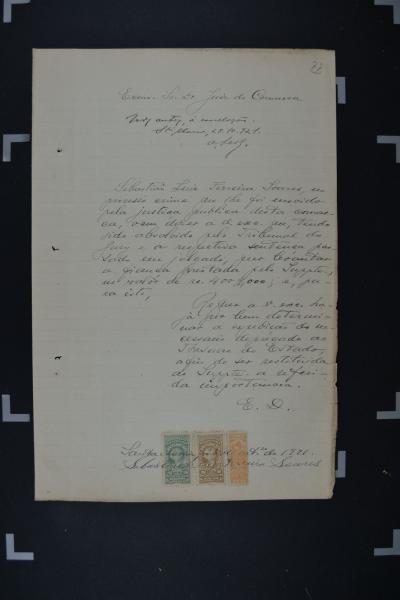 22
Exmo. Sr. Dr. Juiz de Comarca
Nos autos, á conclusão.
Sta Maria, 28.10.921.
Sebastião Luiz Ferreira Soares, no
processo crime em que foi envolvido
pela justiça publica desta comar-
ca, vem dizer a V. exc. que, tendo
sido absolvido pelo Tribunal do
Jury e a respetiva sentença pas-
sado em julgado, quer levantar
a fiança prestada pelo Suppte,
no valor de rs. 400$000; e, pa-
ra isto,
Requer a V. exc. ha-
ja por bem determi-
nar a expedição do ne-
cessario deprecado ao
Thesouro do Estado,
afim de ser restituida
ao Suppte. a referi-
da importancia.
E. D.
Santa Maria, de 1921.
Sebastião Luiz Ferreira Soares